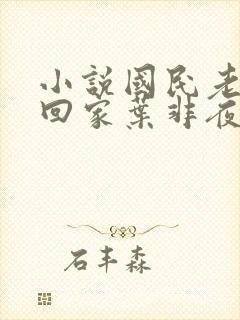 小説國民老
回家葉非夜
石丰森